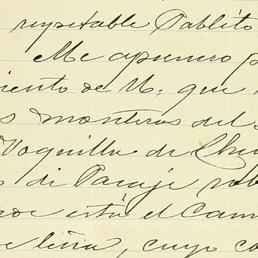 respetable Pablito
Me apresuro p
iento de U. que
s monteras del
Vaquilla de Chu
s di Paraje
está el Cam
leña, cuyo co